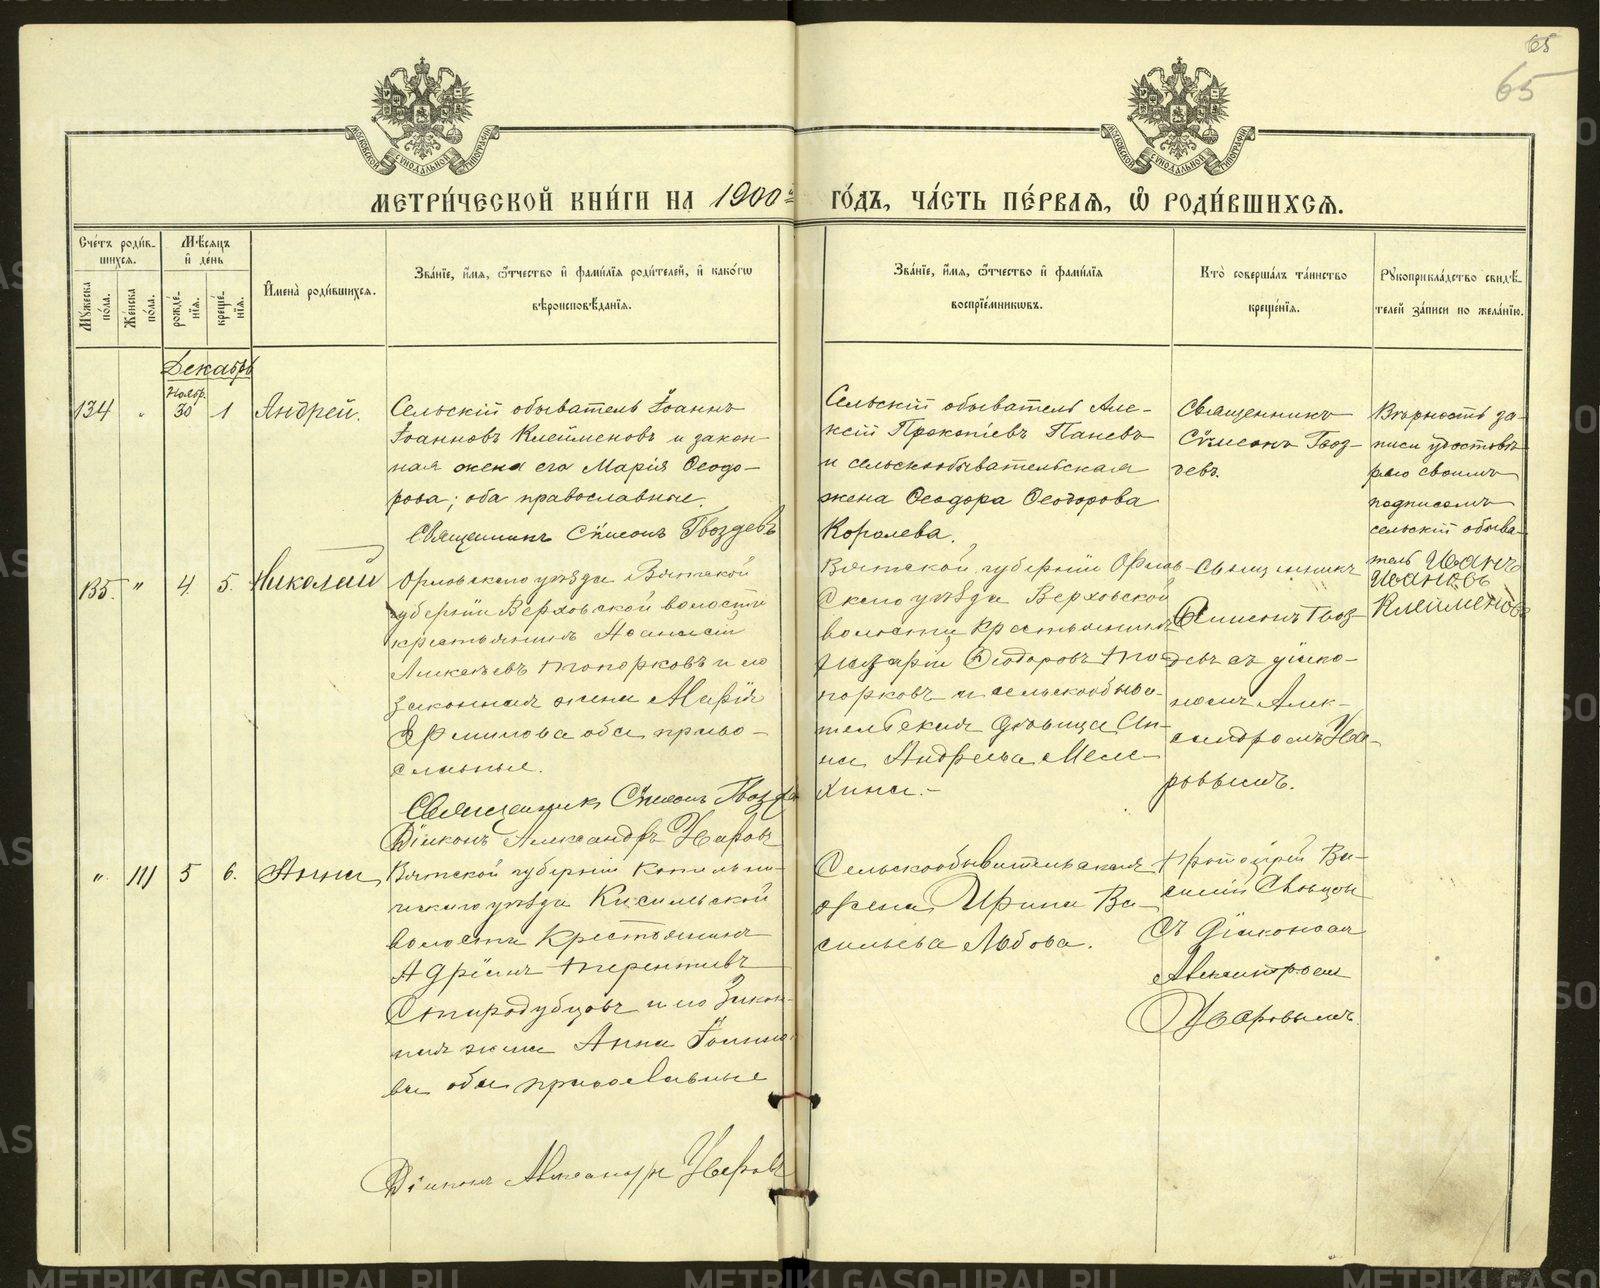 65
65
МЕТРИ́ЧЕСКОЙ КНИ́ГИ НА 1900й
ГО́ДЪ, ЧА́СТЬ ПЕ́РВАѦ, Ѽ РОДИ́ВШИХСѦ.
Сче́тъ роди́в-
шихсѧ.
Мѹ́жеска
по́ла.
Же́нска
по́ла.
Мѣ́сѧцъ
и҆ де́нь
рожде́-
нїѧ.
креще́-
нїѧ.
И҆мена̀ роди́вшихсѧ.
Зва́нїе, и҆́мѧ, ѻ҆́тчество и҆ фами́лїѧ роди́телей, и҆ како́гѡ
вѣроисповѣ́данїѧ.
Зва́нїе, и҆́мѧ, ѻ҆́тчество и҆ фами́лїѧ
воспрїе́мникѡвъ.
Кто̀ соверша́лъ та́инство
креще́нїѧ.
Рꙋкоприкла́дство свидѣ́-
телей за́писи по жела́нїю.
Декабрь
Ноябр.
134 " 30 1 Андрей.
Сельскій обыватель Іоаннъ
Іоанновъ Клейменовъ и закон-
ная жена его Марія Ѳеодо-
рова; оба православные.
Священникъ Сѵмеонъ Гвоздевъ
Сельскій обыватель Але-
ксій Прокопіевъ Паневъ
и сельскообывательская
жена Ѳеодора Ѳеодорова
Королева.
Священникъ
Сѵмеонъ Гвоз-
девъ.
Вѣрность за-
писи удостовѣ-
ряю своимъ
подписомъ
сельскій обыва-
тель Иванъ
Ивановъ
Клейменовъ
135. " 4 5. Николай
Орловскаго уѣзда Вятской
губерніи Верховской волости
крестьянинъ Аѳанасій
Топорковъ и его
законная жена Марія
оба право-
славные.
Священникъ Сѵмеонъ Гвоздев
Діаконъ Александръ Уваровъ
Вятской губерніи Орлов-
скаго уѣзда Верховской
волости крестьянинъ
Назарій Ѳеодоровъ То-
порковъ и сельскообыва-
тельская дѣвица Ан-
на Андреева Меле-
хина.-
Священникъ
Сѵмеонъ Гвоз-
девъ съ діако-
номъ Алек-
сандромъ Ува-
ровымъ.
" 111 5 6. Анна
Вятской губерніи Котельни-
ческаго уѣзда Кисельской
волости крестьянинъ
Адріанъ Терентіевъ
Стародубцовъ и его закон-
ная жена Анна Іоанно-
ва оба православные
Діаконъ Александръ Уваровъ
Сельскообывательская
жена Ирина Ва-
сильева Львова.
Протоіерей Ва-
силій
съ діакономъ
Александромъ
Уваровымъ.
METRIKI.GASO-URAL.RU